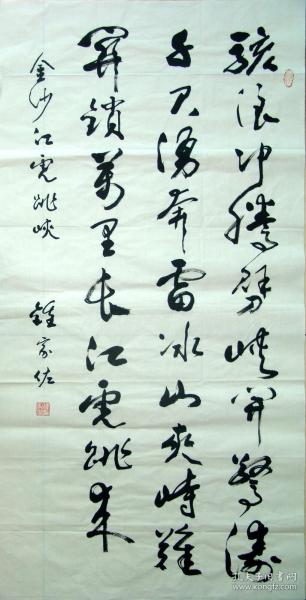 骇浪冲腾劈峡开惊涛
千尺涌奔雷冰山夹峙难
关锁万里长江虎跳来
金沙江虎跳峡
钟家佐
孔夫子旧书网